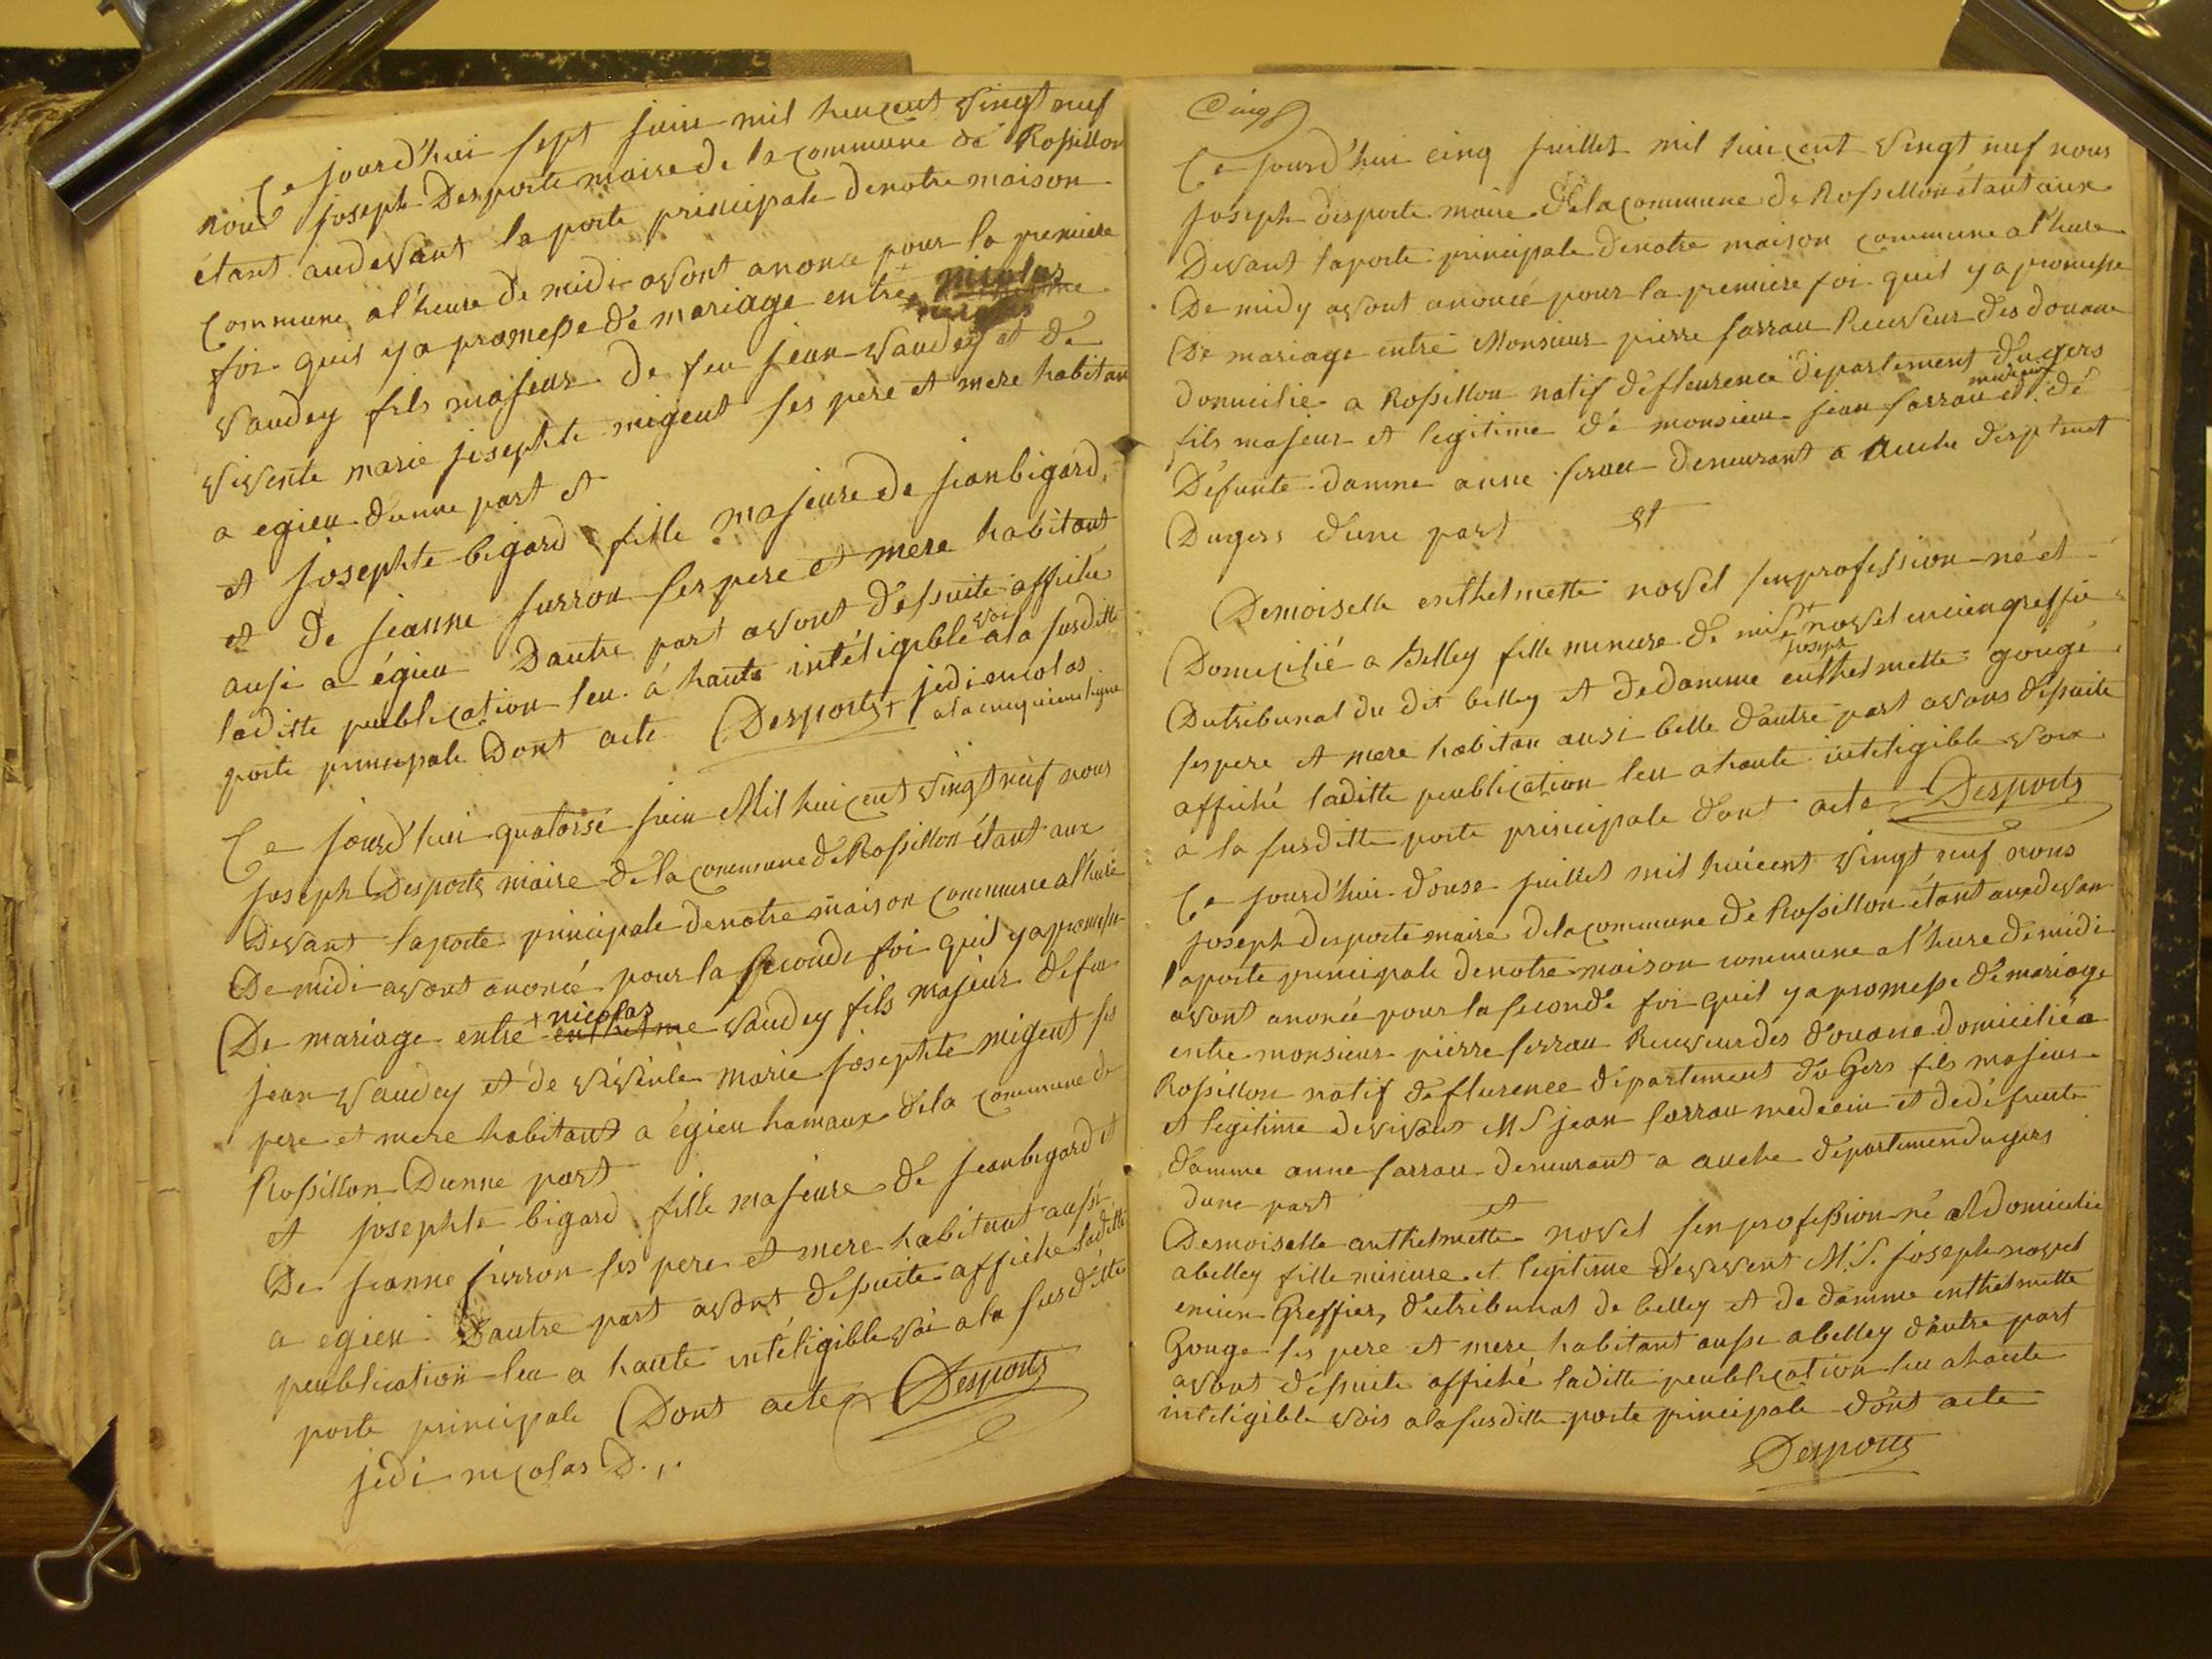 Ce jourd'hui sept juin mil huicent vingt neuf
nous joseph Desporte maire de la commune de Rossillon
étant audevant la porte principale denotre maison
commune al'heure de midi avont anonce pour la premiere
foi quil y a promesse de mariage entre + nicolas
vaudey fils majeur de feu jean vaudey et de
vivente marie josephte migeut ses pere et mere habitan
a egieu dunne part et
et josephte bigard fille majeure de jean bigard
et de jeanne surron ses pere et mere habitant
ausi a égieu Dautre part avont dessuite affiché
laditte peublication leu à haute intéligible voi ala susditte
porte principale Dont acte Desportes + jedi nicolas
ala cinquieme ligne
Ce jourd'hui quatorse juin Mil huicent vingt neuf nous
joseph Desportes maire de la commune de Rossillon étant aux
Devant laporte principale denotre maison commune al'heure
De midi avont anoncé pour la seconde foi quil y a promesse
De mariage entre + nicolas enthelme vaudey fils majeur defeu
jean vaudey et de vivente marie josephte migeut ses
pere et mere habitant a égieu hamaux dela commune de
Rossillon Dunne part
et josephte bigard fille majeure de jean bigard et
De jeanne surron ses pere et mere habitant aussi
a egieu Dautre part avont dessuite affiché laditte
peublication leu a haute intéligible voi ala susditte
porte principale Dont acte Desportes
jedi nicolas D.
Cinq
Ce jourd'hui cinq juillet mil huicent vingt neuf nous
joseph desporte maire dela commune de Rossillon étant aux
Devant laporte principale denotre maison commune al'heure
De midy avont anoncé pour la premiere foi quil y a promesse
De mariage entre Monsieur pierre sarrau Reseveur des douane
domicilie a Rossillon natif defleurence département du gers
fils majeur et legitime de monsieur jean sarrau medecin et de
Défunte damme anne sarau demeurant a Auche
Dugers d'une part et
Demoiselle enthelmette novel sen profession né et
Domicilié a Belley fille mineure de joseph novel encien greffie
Dutribunal du dit belley et dedamme enthelmette gougé
ses pere et mere habitan ausi belle d'autre part avons desuite
affiché laditte peublication leu a haute inteligible voix
a la susditte porte principale dont acte Desportes
Ce jourd'hui douse juillet mil huicent vingt neuf nous
joseph desporte maire dela commune de Rossillon étant auxdevan
laporte principale denotre maison commune a l'heure demidi
avont anoncé pour la seconde foi quil y a promesse de mariage
entre monsieur pierre serrau Receveur des d'ouane domicilié a
Rossillon natif deflurence département du Gers fils majeur
et legitime devivant M S jean sarrau medecin et dedéfunte
damme anne sarrau demeurant a auche départemendugers
dune part et
Demoiselle anthelmette novel sen profession né et domicilie
abelley fille mineure et legitime devivent M.S. joseph novel
encien Greffier, dutribunal de belley et de damme enthelmette
Gouge ses pere et mere habitant ausse abelley d'autre part
avont dessuite affiché laditte peublication leu ahaute
inteligible vois alasusditte porte principale dont acte
Desportes